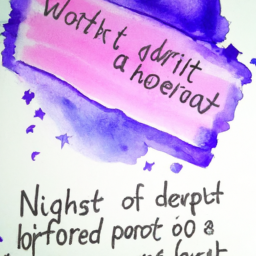 Wortkt gdrit
a hoeroat
Nighst of devpt
lopfored porot oo 8